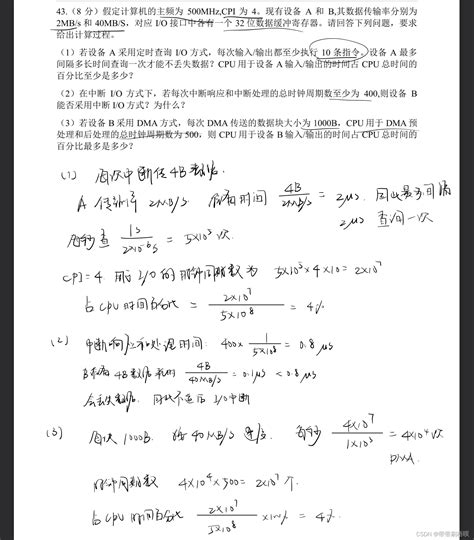 43.(8 分) 假定计算机的主频为 500MHz,CPI 为 4。现有设备 A 和 B,其数据传输率分别为
2MB/s 和 40MB/S，对应 I/O 接口中各有一个 32 位数据缓冲寄存器。请回答下列问题，要求
给出计算过程。
（1）若设备 A 采用定时查询 I/O 方式，每次输入/输出都至少执行 10 条指令。设备 A 最多
间隔多长时间查询一次才能不丢失数据？CPU 用于设备 A 输入/输出的时间占 CPU 总时间的
百分比至少是多少？
（2）在中断 I/O 方式下，若每次中断响应和中断处理的总时钟周期数至少为 400,则设备 B
能否采用中断 I/O 方式？为什么？
（3）若设备 B 采用 DMA 方式，每次 DMA 传送的数据块大小为 1000B，CPU 用于 DMA 预
处理和后处理的总时钟周期数为 500，则 CPU 用于设备 B 输入/输出的时间占 CPU 总时间的
百分比最多是多少？
(1) 每次中断传4B数据
A 传输率 2MB/s 所需时间 4B/2MB/s = 2μs 因此最多间隔
2μs 查询一次
每秒查 1s/2×10⁻⁶s = 5×10⁵ 次
CPI=4 用于I/O的时钟周期数为 5×10⁵×4×10=2×10⁷
占CPU时间百分比 = 2×10⁷/5×10⁸ = 4%
(2) 中断响应和处理时间: 400× 1/5×10⁸ = 0.8μs
B 4B数据 4B/40MB/s = 0.1μs < 0.8μs
会丢失数据 因此不适合 I/O中断
(3) 1000B 40MB/s 每秒 4×10⁷/1×10³ = 4×10⁴ 次
DMA
时钟周期数 4×10⁴×500= 2×10⁷ 个
占CPU时间百分比 2×10⁷/5×10⁸ ×100% = 4%